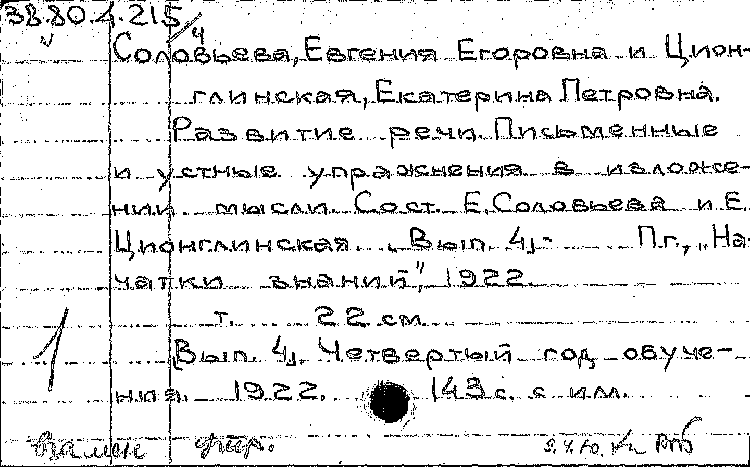 38.80.4.215/4
Соловьева, Евгения Егоровна и Цион-
глинская, Екатерина Петровна.
Развитие речи. Письменные
и устные упражнения в изложе-
нии мысли. Сост. Е. Соловьева и Е.
Ционглинская. Вып. 4,- Пг., „На-
чатки знаний", 1922.
т. 22 см.
Вып. 4, Четвертый год обуче-
ния. 1922. 143 с. с илл.
1
Взамен